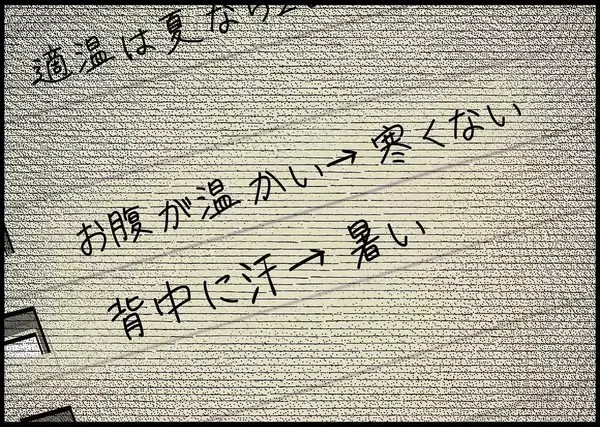 適温は夏なら2
お腹が温かい→寒くない
背中に汗→暑い